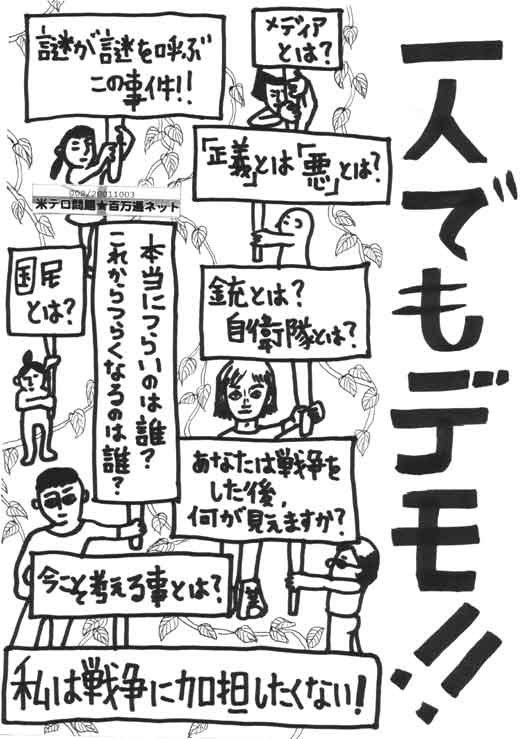 一人でもデモ!!
メディア
とは?
謎が謎を呼ぶ
この事件!!
「正義」とは「悪」とは?
008/20011003
米テロ問題★百万遍ネット
本当につらいのは誰?
これからつらくなるのは誰?
国民
とは?
銃とは?
自衛隊とは?
あなたは戦争を
した後,
何が見えますか?
今こそ考える事とは?
私は戦争に加担したくない!